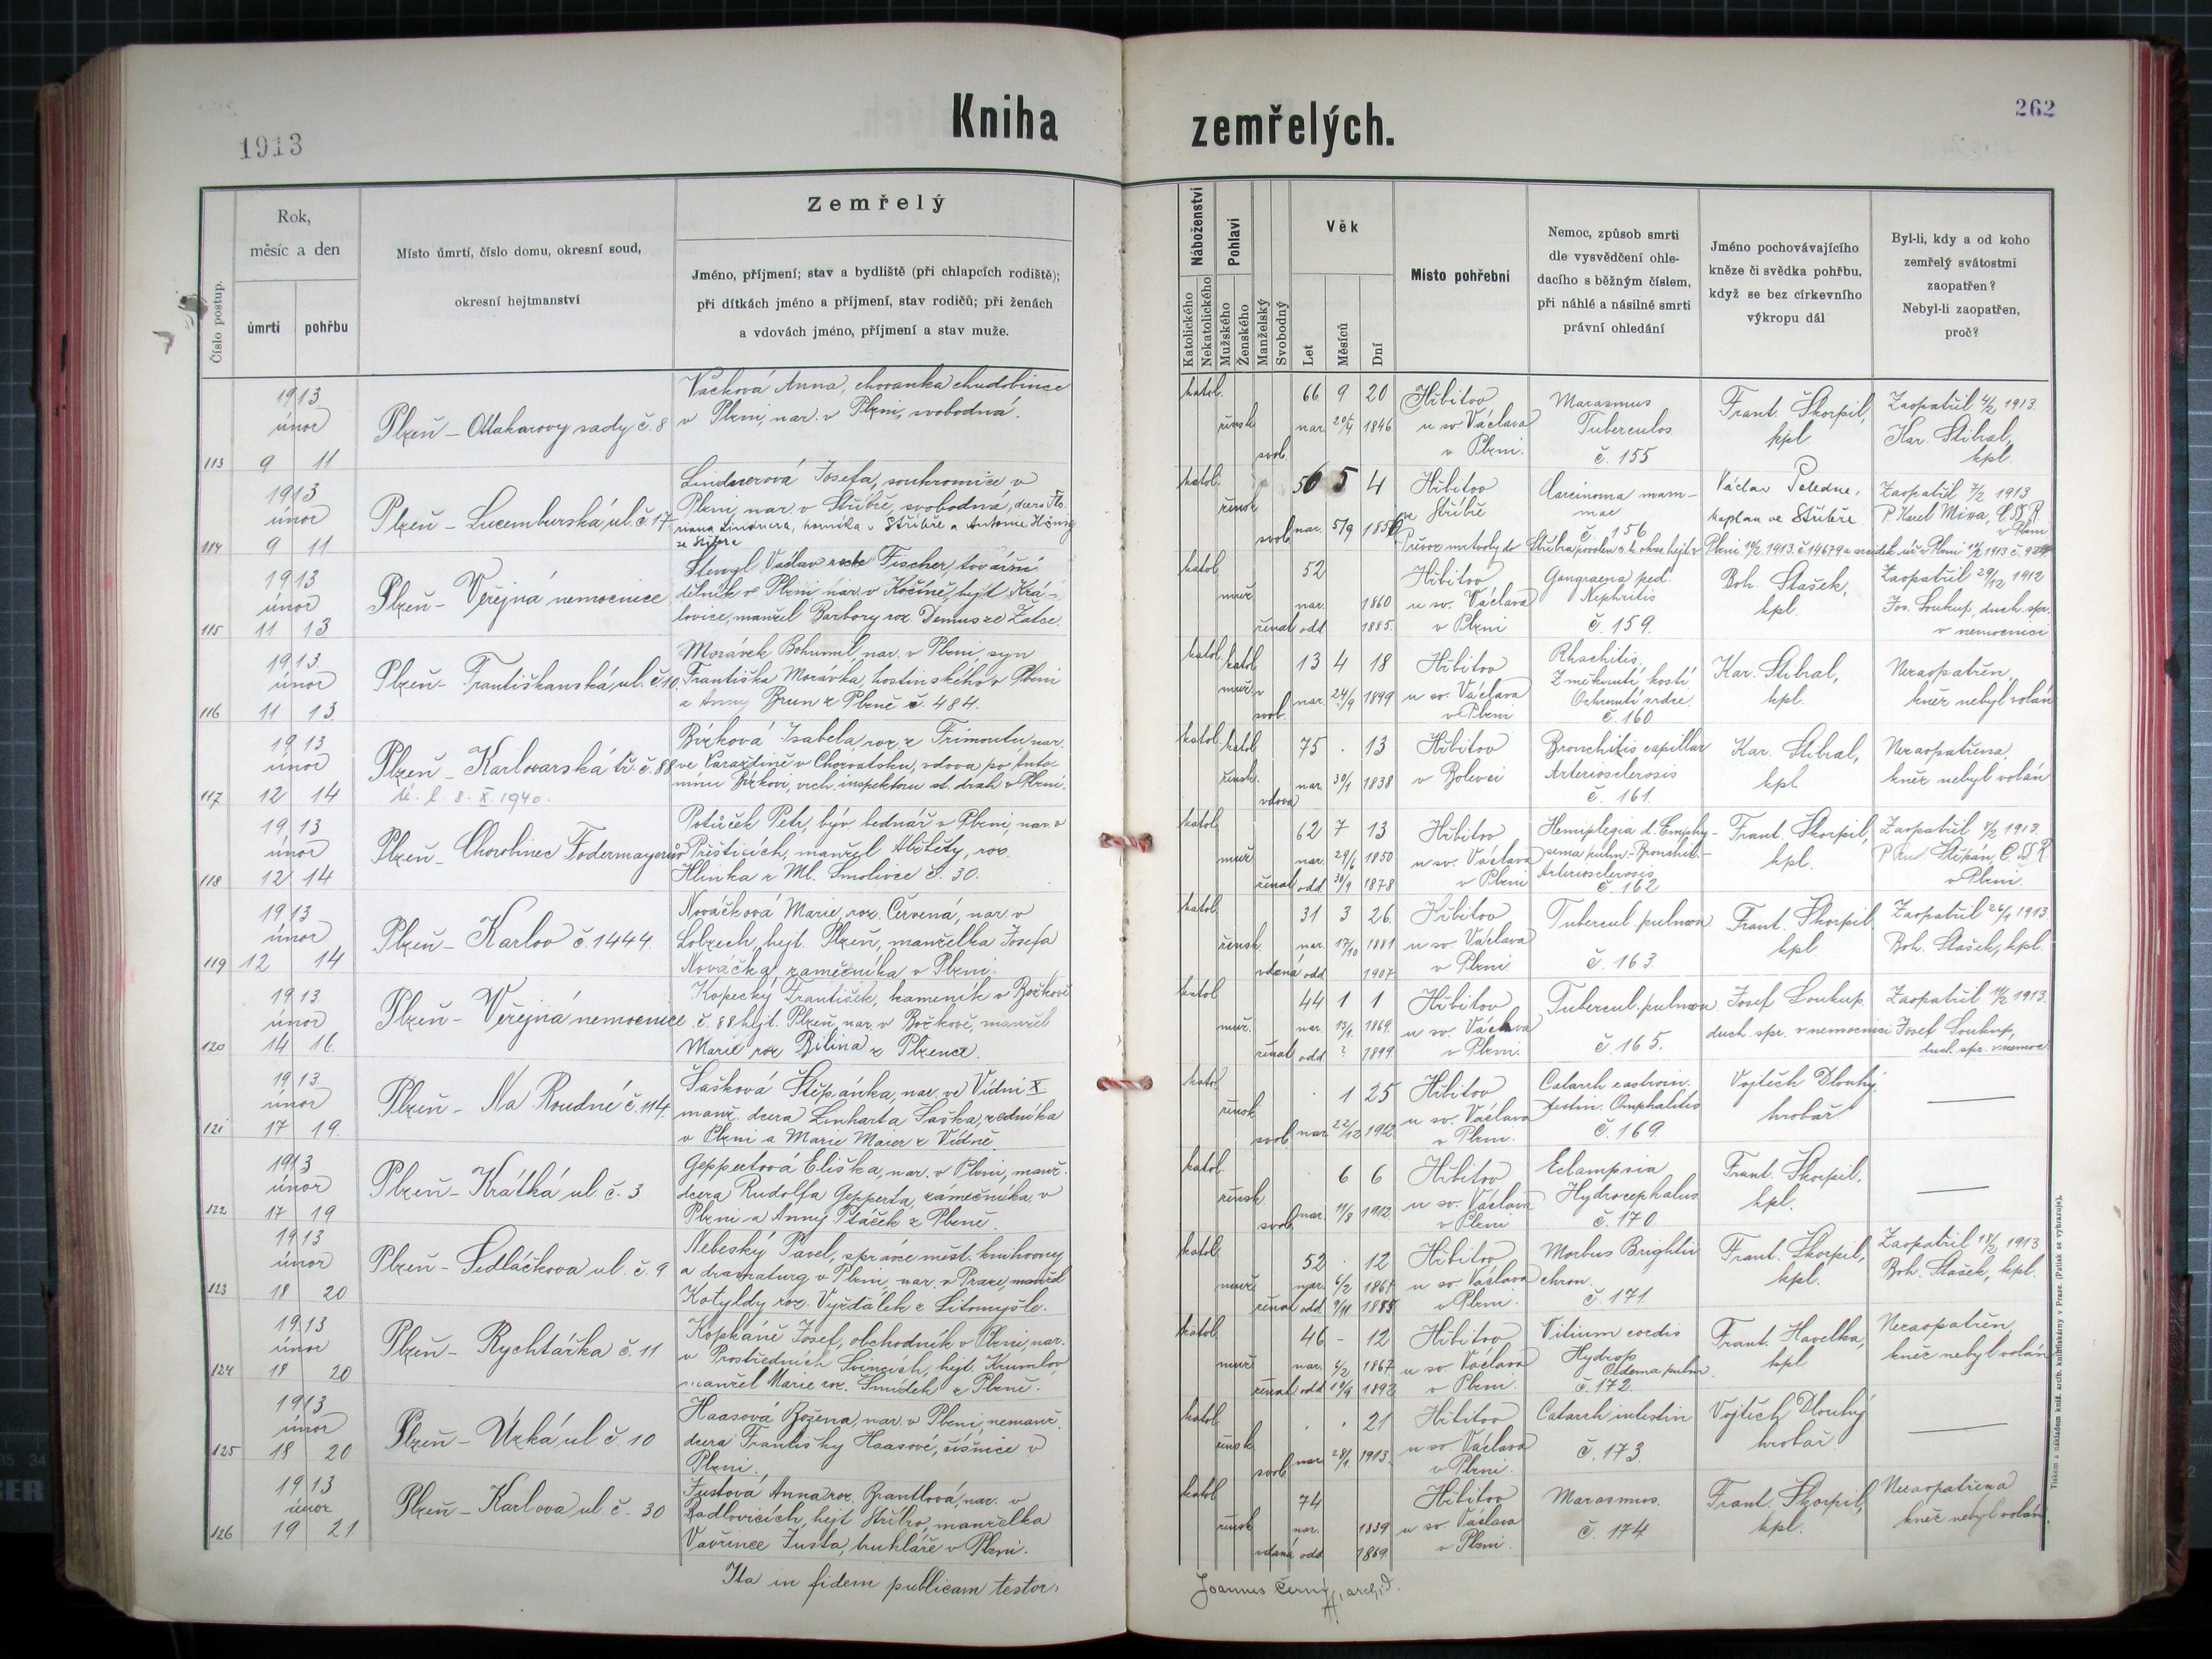 Kniha zemřelých.
262
1913
Číslo postup.
Rok,
měsíc a den
úmrtí
pohřbu
Místo úmrtí, číslo domu, okresní soud,
okresní hejtmanství
Zemřelý
Jméno, příjmení; stav a bydliště (při chlapcích rodiště);
při dítkách jméno a příjmení, stav rodičů; při ženách
a vdovách jméno, příjmení a stav muže.
Náboženství
Katolického
Nekatolického
Pohlaví
Mužského
Ženského
Manželský
Svobodný
Věk
Let
Měsíců
Dní
Místo pohřební
Nemoc, způsob smrti
dle vysvědčení ohle-
dacího s běžným číslem,
při náhlé a násilné smrti
právní ohledání
Jméno pochovávajícího
kněze či svědka pohřbu,
když se bez církevního
výkropu dál
Byl-li, kdy a od koho
zemřelý svátostmi
zaopatřen?
Nebyl-li zaopatřen,
proč?
113
1913
únor
9 11
Plzeň - Ottakarovy sady č. 8
Vacková Anna, chovanka chudobince
v Plzni, nar. v Plzni, svobodná.
katol.
žensk
svob.
66 9 20
nar. 20/4 1846
Hřbitov
u sv. Václava
v Plzni.
Marasmus
Tuberculos
č. 155
Frant. Škorpil,
kpl.
Zaopatřil 4/2 1913.
Kar. Stibral,
kpl.
114
1913
únor
9 11
Plzeň - Lucemburská ul. č. 17
Lindnerová Josefa, soukromnice v
Plzni, nar. v Stříbře, svobodná, dcera Flo-
riana Lindnera, horníka v Stříbře a Antonie König
ze Stříbra
katol.
žensk
svob.
56 5 4
nar. 5/9 1856
Hřbitov
ve Stříbře
Carcinoma mam-
mae
č. 156
Václav Poledne,
kaplan ve Stříbře
Zaopatřil 7/2 1913
P. Karel Mixa, C.SS.R.
v Plzni
Převoz mrtvoly do Stříbra povolen c. k. okres. hejt. v Plzni 10/2 1913 č. 14679 a
115
1913
únor
11 13
Plzeň - Veřejná nemocnice
Václav recte Fischer, tovární
dělník v Plzni, nar. v Kočíně, hejt. Krá-
lovice, manžel Barbory roz. Demus ze Žatce.
katol.
muž
ženat
52
nar. 1860
odd. 1885.
Hřbitov
u sv. Václava
v Plzni
Gangraena ped.
Nephritis
č. 159.
Boh. Stašek,
kpl.
Zaopatřil 29/12 1912
Jos. Soukup, duch. spr.
v nemocnici
116
1913.
únor
11 13.
Plzeň - Františkanská ul. č. 10.
Morávek Bohumil, nar. v Plzni, syn
Františka Morávka, hostinského v Plzni
a Anny Brun z Plzně č. 484.
katol.
katol
muž.
svob.
13 4 18
nar. 24/9 1899
Hřbitov
u sv. Václava
v Plzni
Rhachitis,
Změknutí kostí
Ochrnutí srdce.
č. 160
Kar. Stibral,
kpl.
Nezaopatřen,
kněz nebyl volán
117
1913
únor
12 14
Plzeň - Karlovarská tř. č. 88
ú. l. 8. X. 1940.
Bízková Isabela roz. z Trimontu nar.
ve Varaždině v Chorvatsku, vdova po Anto-
nínu Bízkovi, vrch. inspektoru st. drah v Plzni.
katol.
katol
žensk.
vdova
75 . 13
nar. 30/1 1838
Hřbitov
v Bolevci
Bronchitis capillar
Arteriosclerosis
č. 161.
Kar. Stibral,
kpl
Nezaopatřena,
kněz nebyl volán
118
1913
únor
12 14
Plzeň - Chorobinec Fodermayerův
Potůček Petr, býv. bednář v Plzni, nar. v
Přešticích, manžel Alžběty, roz.
Hlinka z Ml. Smolivce č. 30.
katol.
muž
ženat
62 7 13
nar. 29/6 1850
odd. 30/9 1878
Hřbitov
u sv. Václava
v Plzni
Hemiplegia d. Emphy-
sema pulm. - Bronchit. -
Arteriosclerosis
č. 162
Frant. Škorpil,
kpl.
Zaopatřil 8/2 1913.
P. Rud. Štěpán, C.SS.R.
v Plzni.
119
1913
únor
12 14
Plzeň - Karlov č. 1444.
Nováčková Marie, roz. Červená, nar. v
Lobzech, hejt. Plzeň, manželka Josefa
Nováčka, zámečníka v Plzni.
katol.
žensk
vdaná
31 3 26.
nar. 17/10 1881
odd. 1907
Hřbitov
u sv. Václava
v Plzni
Tubercul. pulmon
č. 163.
Frant. Škorpil
kpl.
Zaopatřil 26/1 1913.
Boh. Stašek, kpl.
120
1913.
únor
14 16.
Plzeň - Veřejná nemocnice
Kopecký František, kameník v Božkově
č. 88 hejt. Plzeň, nar. v Božkově, manžel
Marie roz Bílina z Plzence.
katol
muž.
ženat
44 1 1
nar. 13/1 1869.
odd ? 1899
Hřbitov
u sv. Václava
v Plzni.
Tubercul. pulmon
č. 165.
Josef Soukup
duch. spr. v nemocnici
Zaopatřil 11/2 1913.
Josef Soukup,
duch. spr. v nemoc
121
1913.
únor
17 19.
Plzeň - Na Roudné č. 114
Šašková Štěpánka, nar. ve Vídni X.
manž. dcera Linharta Šaška, zedníka
v Plzni a Marie Maier z Vídně
katol
žensk
svob.
. 1 25
nar. 22/12 1912
Hřbitov
u sv. Václava
v Plzni.
Catarrh gastroin-
testin. Omphalitis
č. 169
Vojtěch Dlouhý
hrobař
122
1913
únor
17 19
Plzeň - Krátká ul. č. 3
Geppertová Eliška, nar. v Plzni, manž.
dcera Rudolfa Gepperta, zámečníka v
Plzni a Anny Ptáček z Plzně.
katol.
žensk
svob.
. 6 6
nar. 11/8 1912.
Hřbitov
u sv. Václava
v Plzni
Eclampsia
Hydrocephalus
č. 170
Frant. Škorpil,
kpl.
123
1913
únor
18 20
Plzeň - Sedláčkova ul. č. 9
Nebeský Pavel, správce měst. knihovny
a dramaturg v Plzni, nar. v Praze, manžel
Kotyldy roz. Vyžďálek z Litomyšle.
katol.
muž.
ženat
52 . 12
nar. 6/2 1861
odd. 9/11 1885
Hřbitov
u sv. Václava
v Plzni.
Morbus Brightii
chron.
č. 171.
Frant. Škorpil,
kpl.
Zaopatřil 18/2 1913
Boh. Stašek, kpl.
124
1913
únor
18 20
Plzeň - Rychtářka č. 11
Josef, obchodník v Plzni, nar.
v Prostředních Svincích, hejt. Krumlov
manžel Marie roz. Šmídek z Plzně.
katol
muž
ženat
46 - 12
nar. 6/2 1867
odd 10/9 1892
Hřbitov
u sv. Václava
v Plzni.
Vitium cordis
Hydrop
Oedema pulm.
č. 172.
Frant. Havelka,
kpl
Nezaopatřen
kněz nebyl volán
125
1913
únor
18 20
Plzeň - Úzká ul. č. 10
Haasová Božena, nar. v Plzni, nemanž.
dcera Františky Haasové, šišnice v
Plzni.
katol.
žensk
svob.
. . 21
nar. 28/1 1913.
Hřbitov
u sv. Václava
v Plzni.
Catarrh intestin
č. 173.
Vojtěch Dlouhý
hrobař.
126
1913
únor
19 21
Plzeň - Karlova ul. č. 30
Justová Anna roz. Brantlová, nar. v
Radlovicích, hejt Stříbro, manželka
Vavřince Justa, truhláře v Plzni.
katol
žensk
vdaná
74
nar. 1839
odd 1869.
Hřbitov
u sv. Václava
v Plzni.
Marasmus.
č. 174.
Frant. Škorpil,
kpl.
Nezaopatřena
kněz nebyl volán.
Ita in fidem publicam testor,
Joannes Černý, archid.
Tiskem a nákladem kníž. arcib. knihtiskárny v Praze. (Patisk se vyhrazuje).